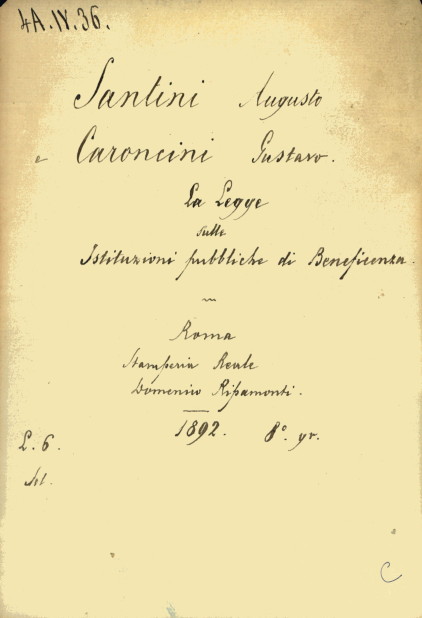 4A.IV.36.
Santini Augusto
e Caroncini Gustavo.
La Legge
sulle
Istituzioni pubbliche di Beneficenza.
Roma
Stamperia Reale
Domenico Ripamonti.
1892. 8°. gr.
L. 6.
C